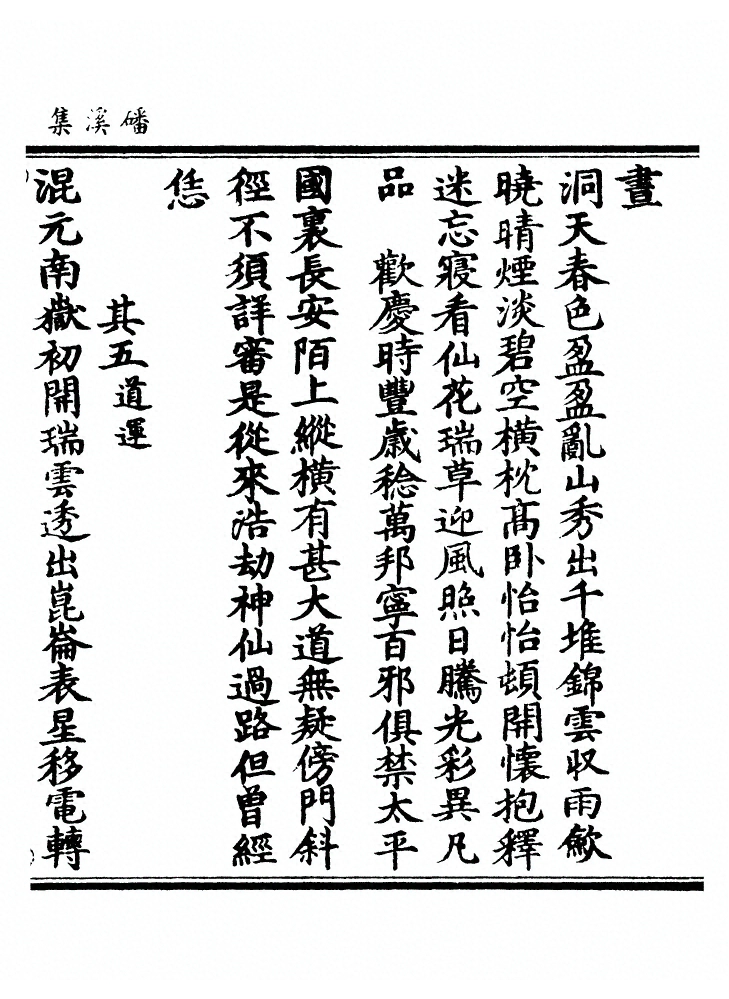 磻溪集
晝
洞天春色盈盈亂山秀出千堆錦雲収雨歛
曉晴煙淡碧空橫枕髙卧怡怡頓開懷抱釋
迷忘寢看仙花瑞草迎風照日騰光彩異凡
品　歡慶時豐歳稔萬邦寧百邪俱禁太平
國裏長安陌上縱橫有甚大道無疑傍門斜
徑不須詳審是從來浩劫神仙過路但曽經
恁
其五道運
混元南嶽初開瑞雲透出崑崙表星移電轉